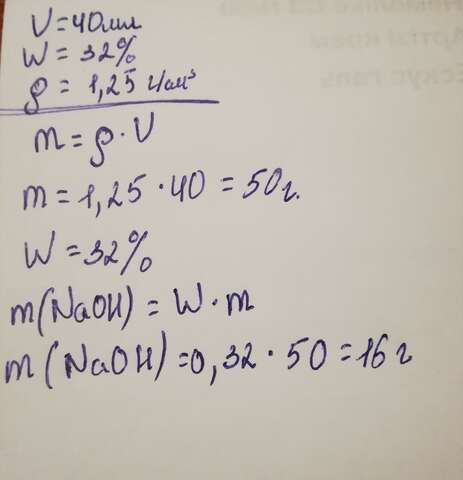 V = 40мл
W = 32%
ρ = 1,25 г/см³
m = ρ · V
m = 1,25 · 40 = 50г.
W = 32%
m(NaOH) = W · m
m(NaOH) = 0,32 · 50 = 16 г